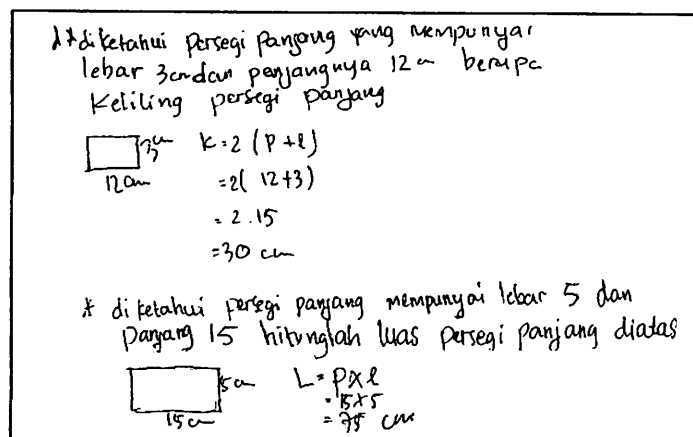 * diketahui persegi panjang yang mempunyai
lebar 3cm dan panjangnya 12 cm berapa
Keliling persegi panjang
3 cm K = 2 (P + l)
12 cm = 2( 12+3)
= 2 . 15
= 30 cm
* diketahui persegi panjang mempunyai lebar 5 dan
panjang 15 hitunglah luas persegi panjang diatas
5 cm L = p x l
= 15 x 5
15 cm = 75 cm